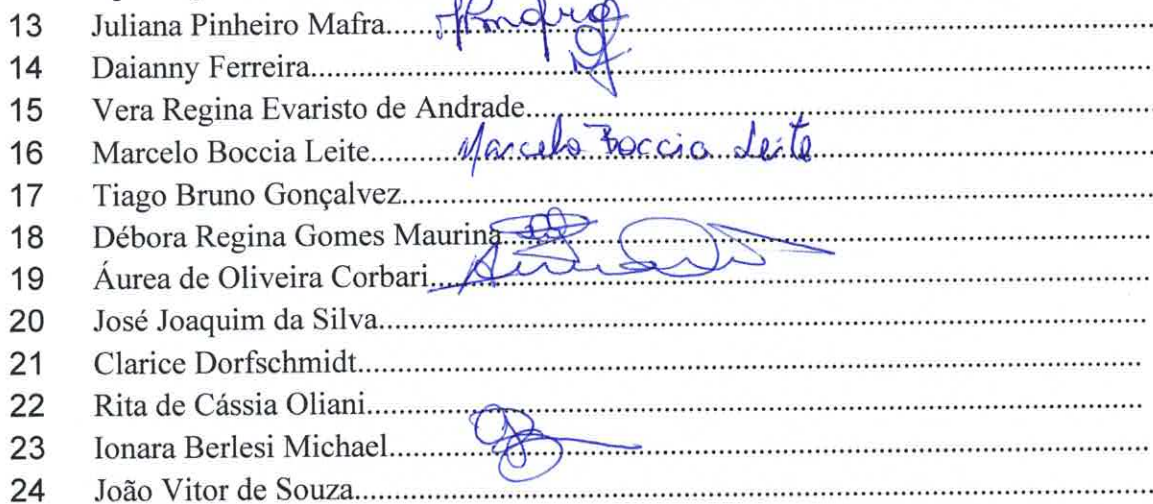 13 Juliana Pinheiro Mafra
14 Daianny Ferreira
15 Vera Regina Evaristo de Andrade
16 Marcelo Boccia Leite Marcelo Boccia Leite
17 Tiago Bruno Gonçalvez
18 Débora Regina Gomes Maurina
19 Áurea de Oliveira Corbari
20 José Joaquim da Silva
21 Clarice Dorfschmidt
22 Rita de Cássia Oliani
23 Ionara Berlesi Michael
24 João Vitor de Souza